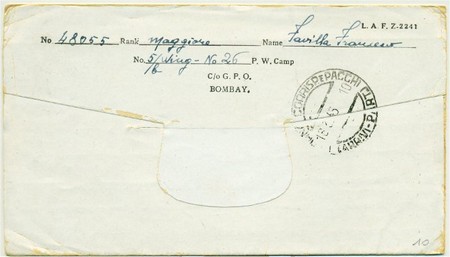 L. A. F. Z-2241
No 48055 Rank Maggiore Name Favilla Francesco
No. 5/Wing - No 26 P. W. Camp
C/o G. P. O.
BOMBAY.
CORRISP. E PACCHI
10